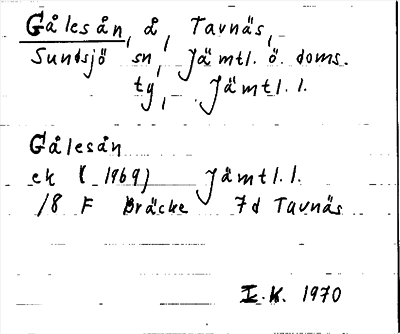 Gålesån, å, Tavnäs,
Sundsjö sn, Jämtl. ö. doms.
tg, Jämtl. l.
Gålesån
ek (1969) Jämtl. l.
18 F Bräcke 7d Tavnäs
I.K. 1970